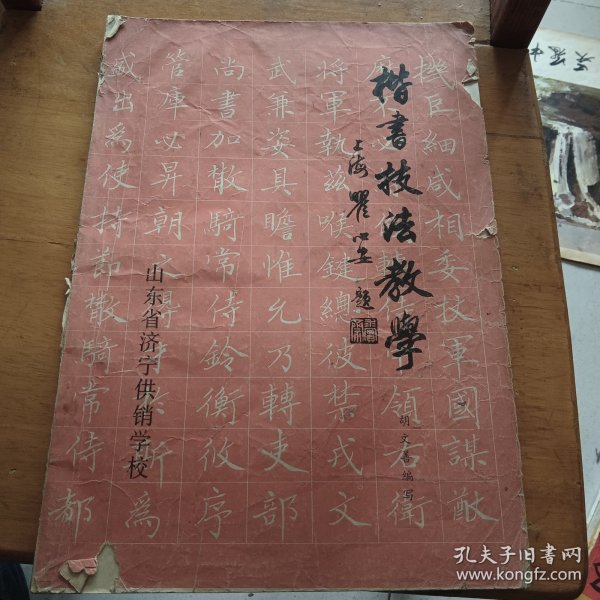 楷書技法教學
上海瞿
題
胡文善编写
山东省济宁供销学校
機臣細咸相委技軍國謀猷
領右衛
將軍執茲喉鍵總彼禁戎文
武兼姿具瞻惟允乃轉吏部
尚書加散騎常侍鈴衡攸序
管庫必昇朝之得
斯為
盛出為使持節散騎常侍都
孔夫子旧书网
www.kongfz.com